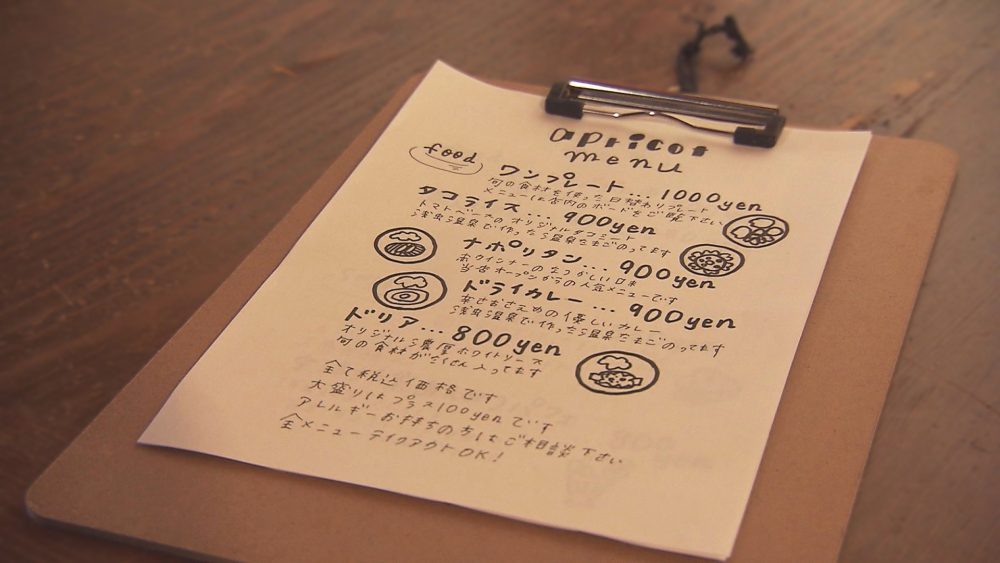 apricot
menu
food
ワンプレート... 1000yen
旬の食材を使った日替わりプレート
メニューは店内のボードをご覧下さい
タコライス... 900yen
トマトベースのオリジナルタコミート
浅虫温泉で作ったら温泉たまごのってます
ナポリタン... 900yen
赤ウインナーのなつかしい口味
当店オープンからの人気メニューです
ドライカレー... 900yen
辛さおさえめの優しいカレー
浅虫温泉で作ったら温泉たまごのってます
ドリア... 800yen
オリジナルら濃厚ホワイトソース
旬の食材がぜいたく入ってます
全て税込価格です
大盛りはプラス100yenです
アレルギーお持ちの方はご相談下さい
全メニューテイクアウトOK!